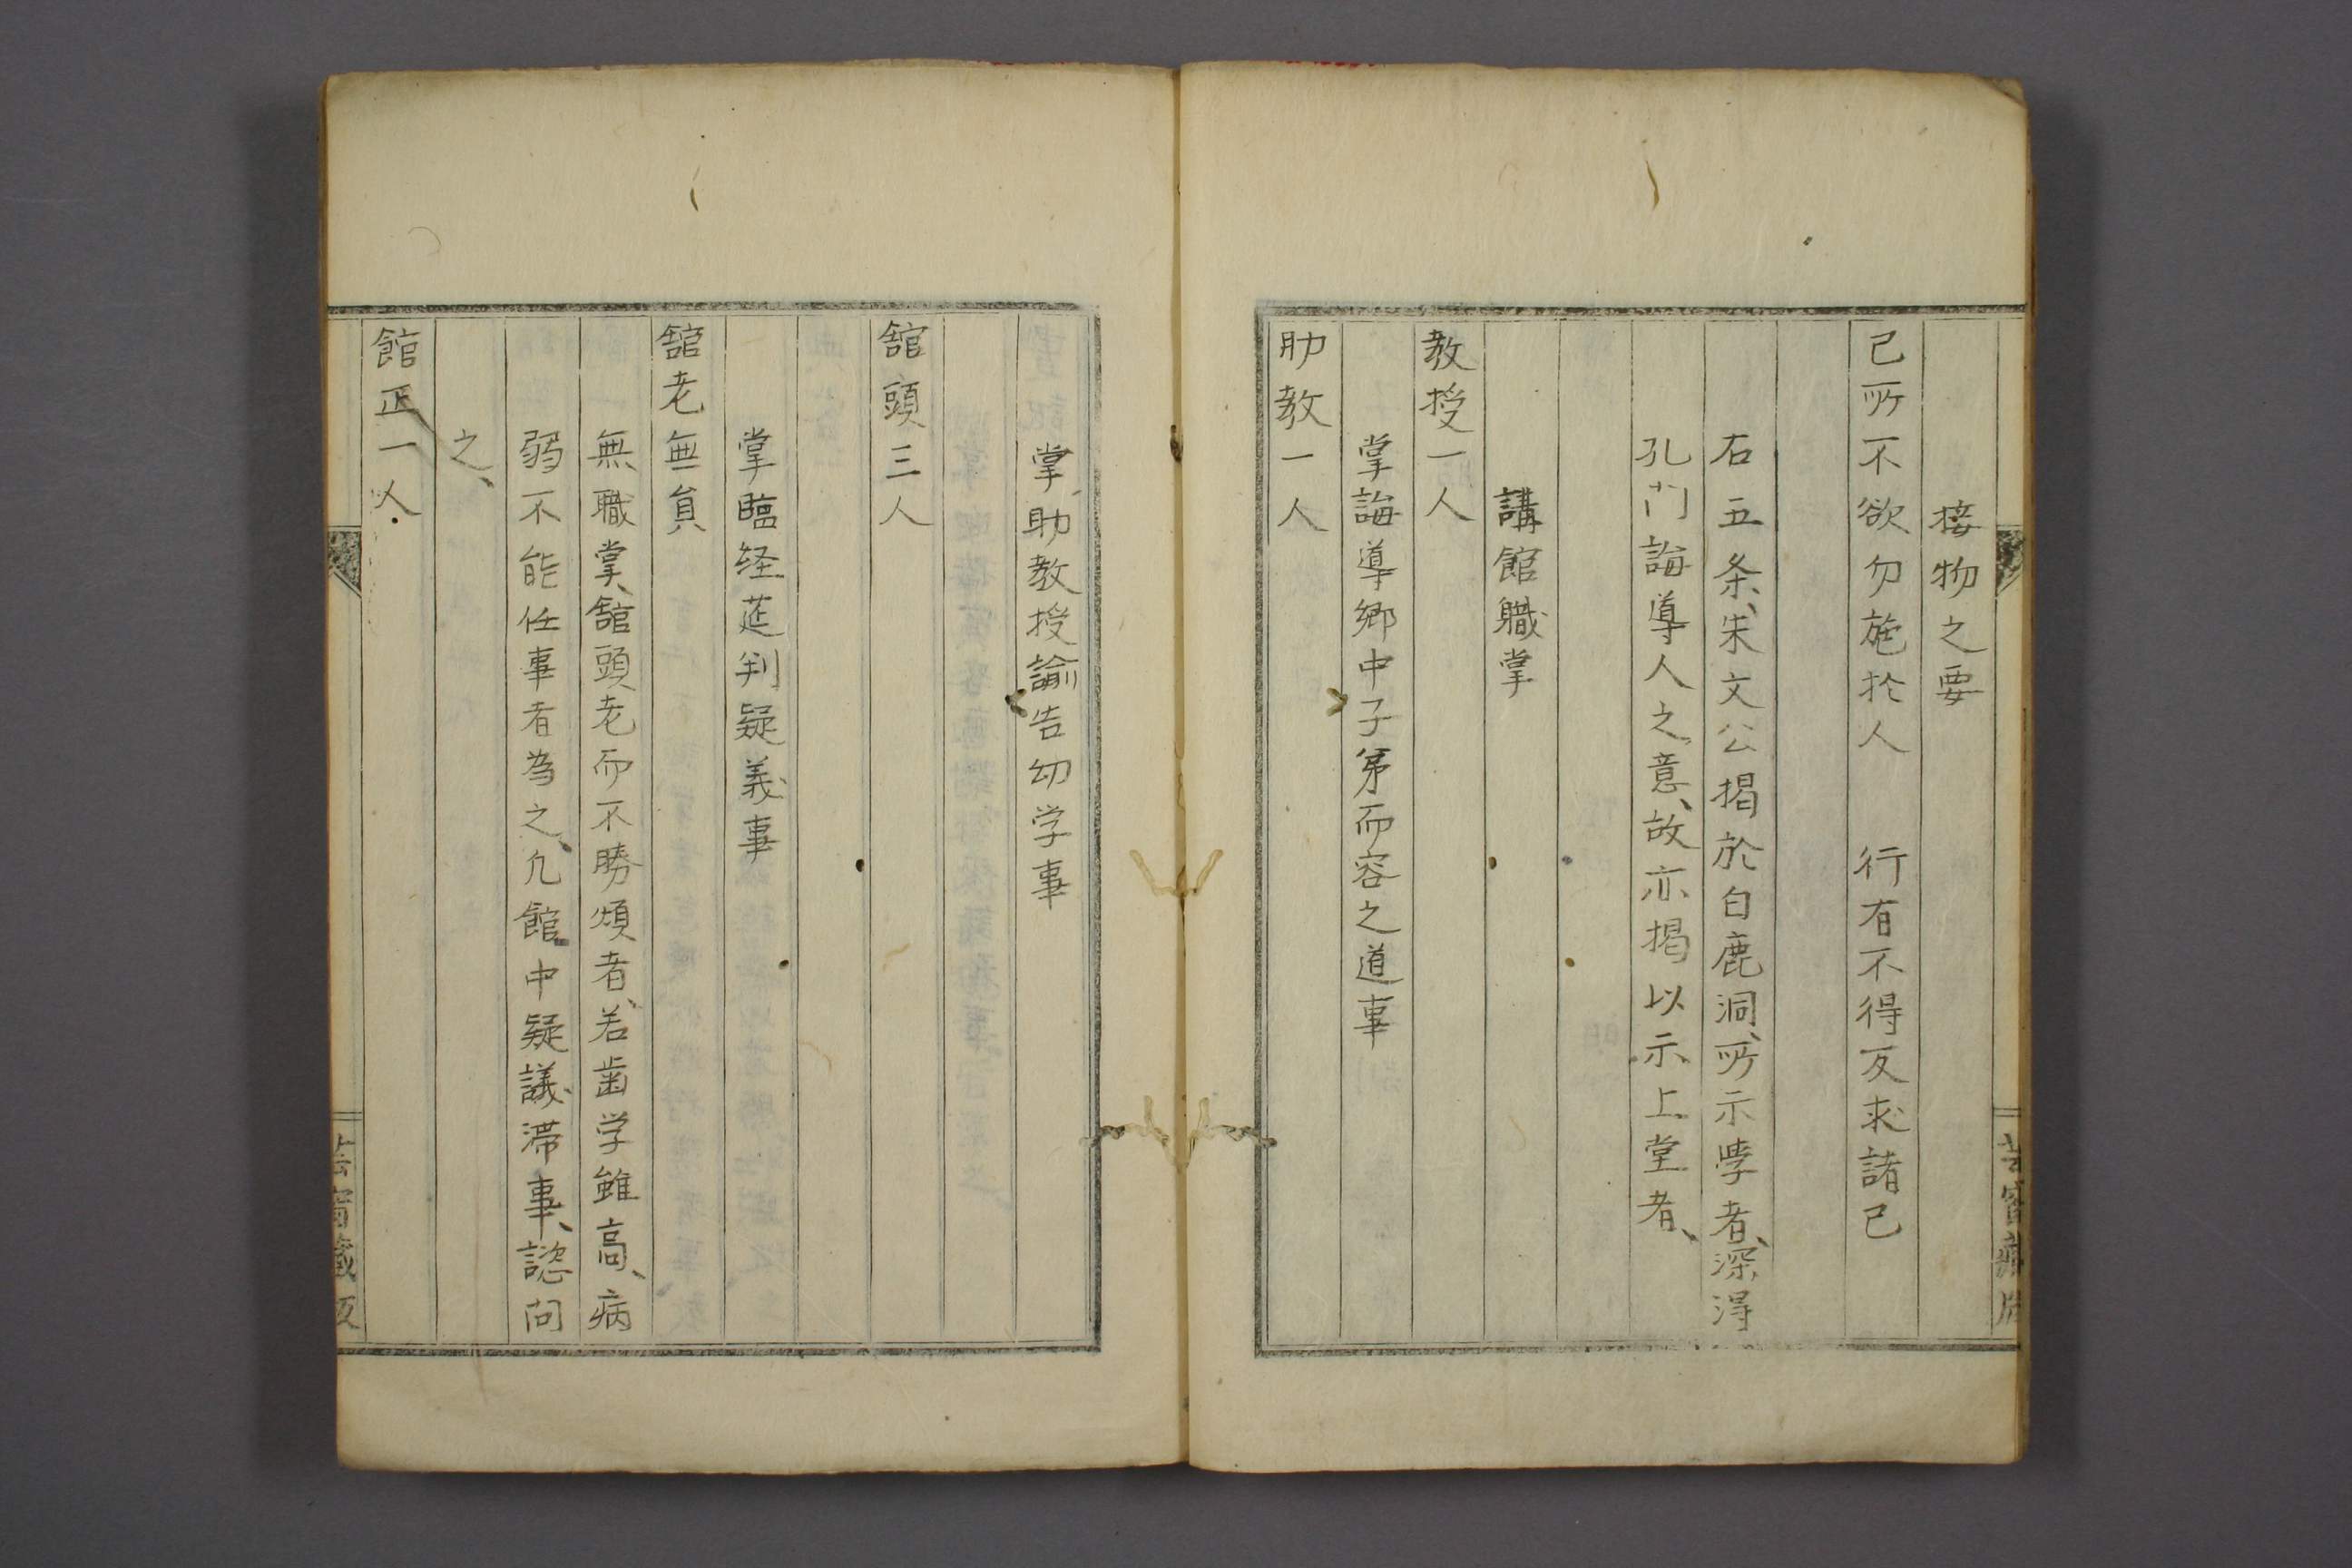 接物之要
己所不欲勿施於人　行有不得反求諸己
右五条、朱文公掲於白鹿洞、所示学者、深得
孔門誨導人之意、故亦掲以示上堂者、
講館職掌
教授一人
掌誨導郷中子弟而容之道事
助教一人
掌助教授諭告幼学事
舘頭三人
掌臨経莚判疑義事
舘老無員
無職掌、舘頭老而不勝煩者、若歯学雖高、病
弱不能任事者為之、凡館中疑議滞事、諮問
之、
館正一人
芸窗蔵版